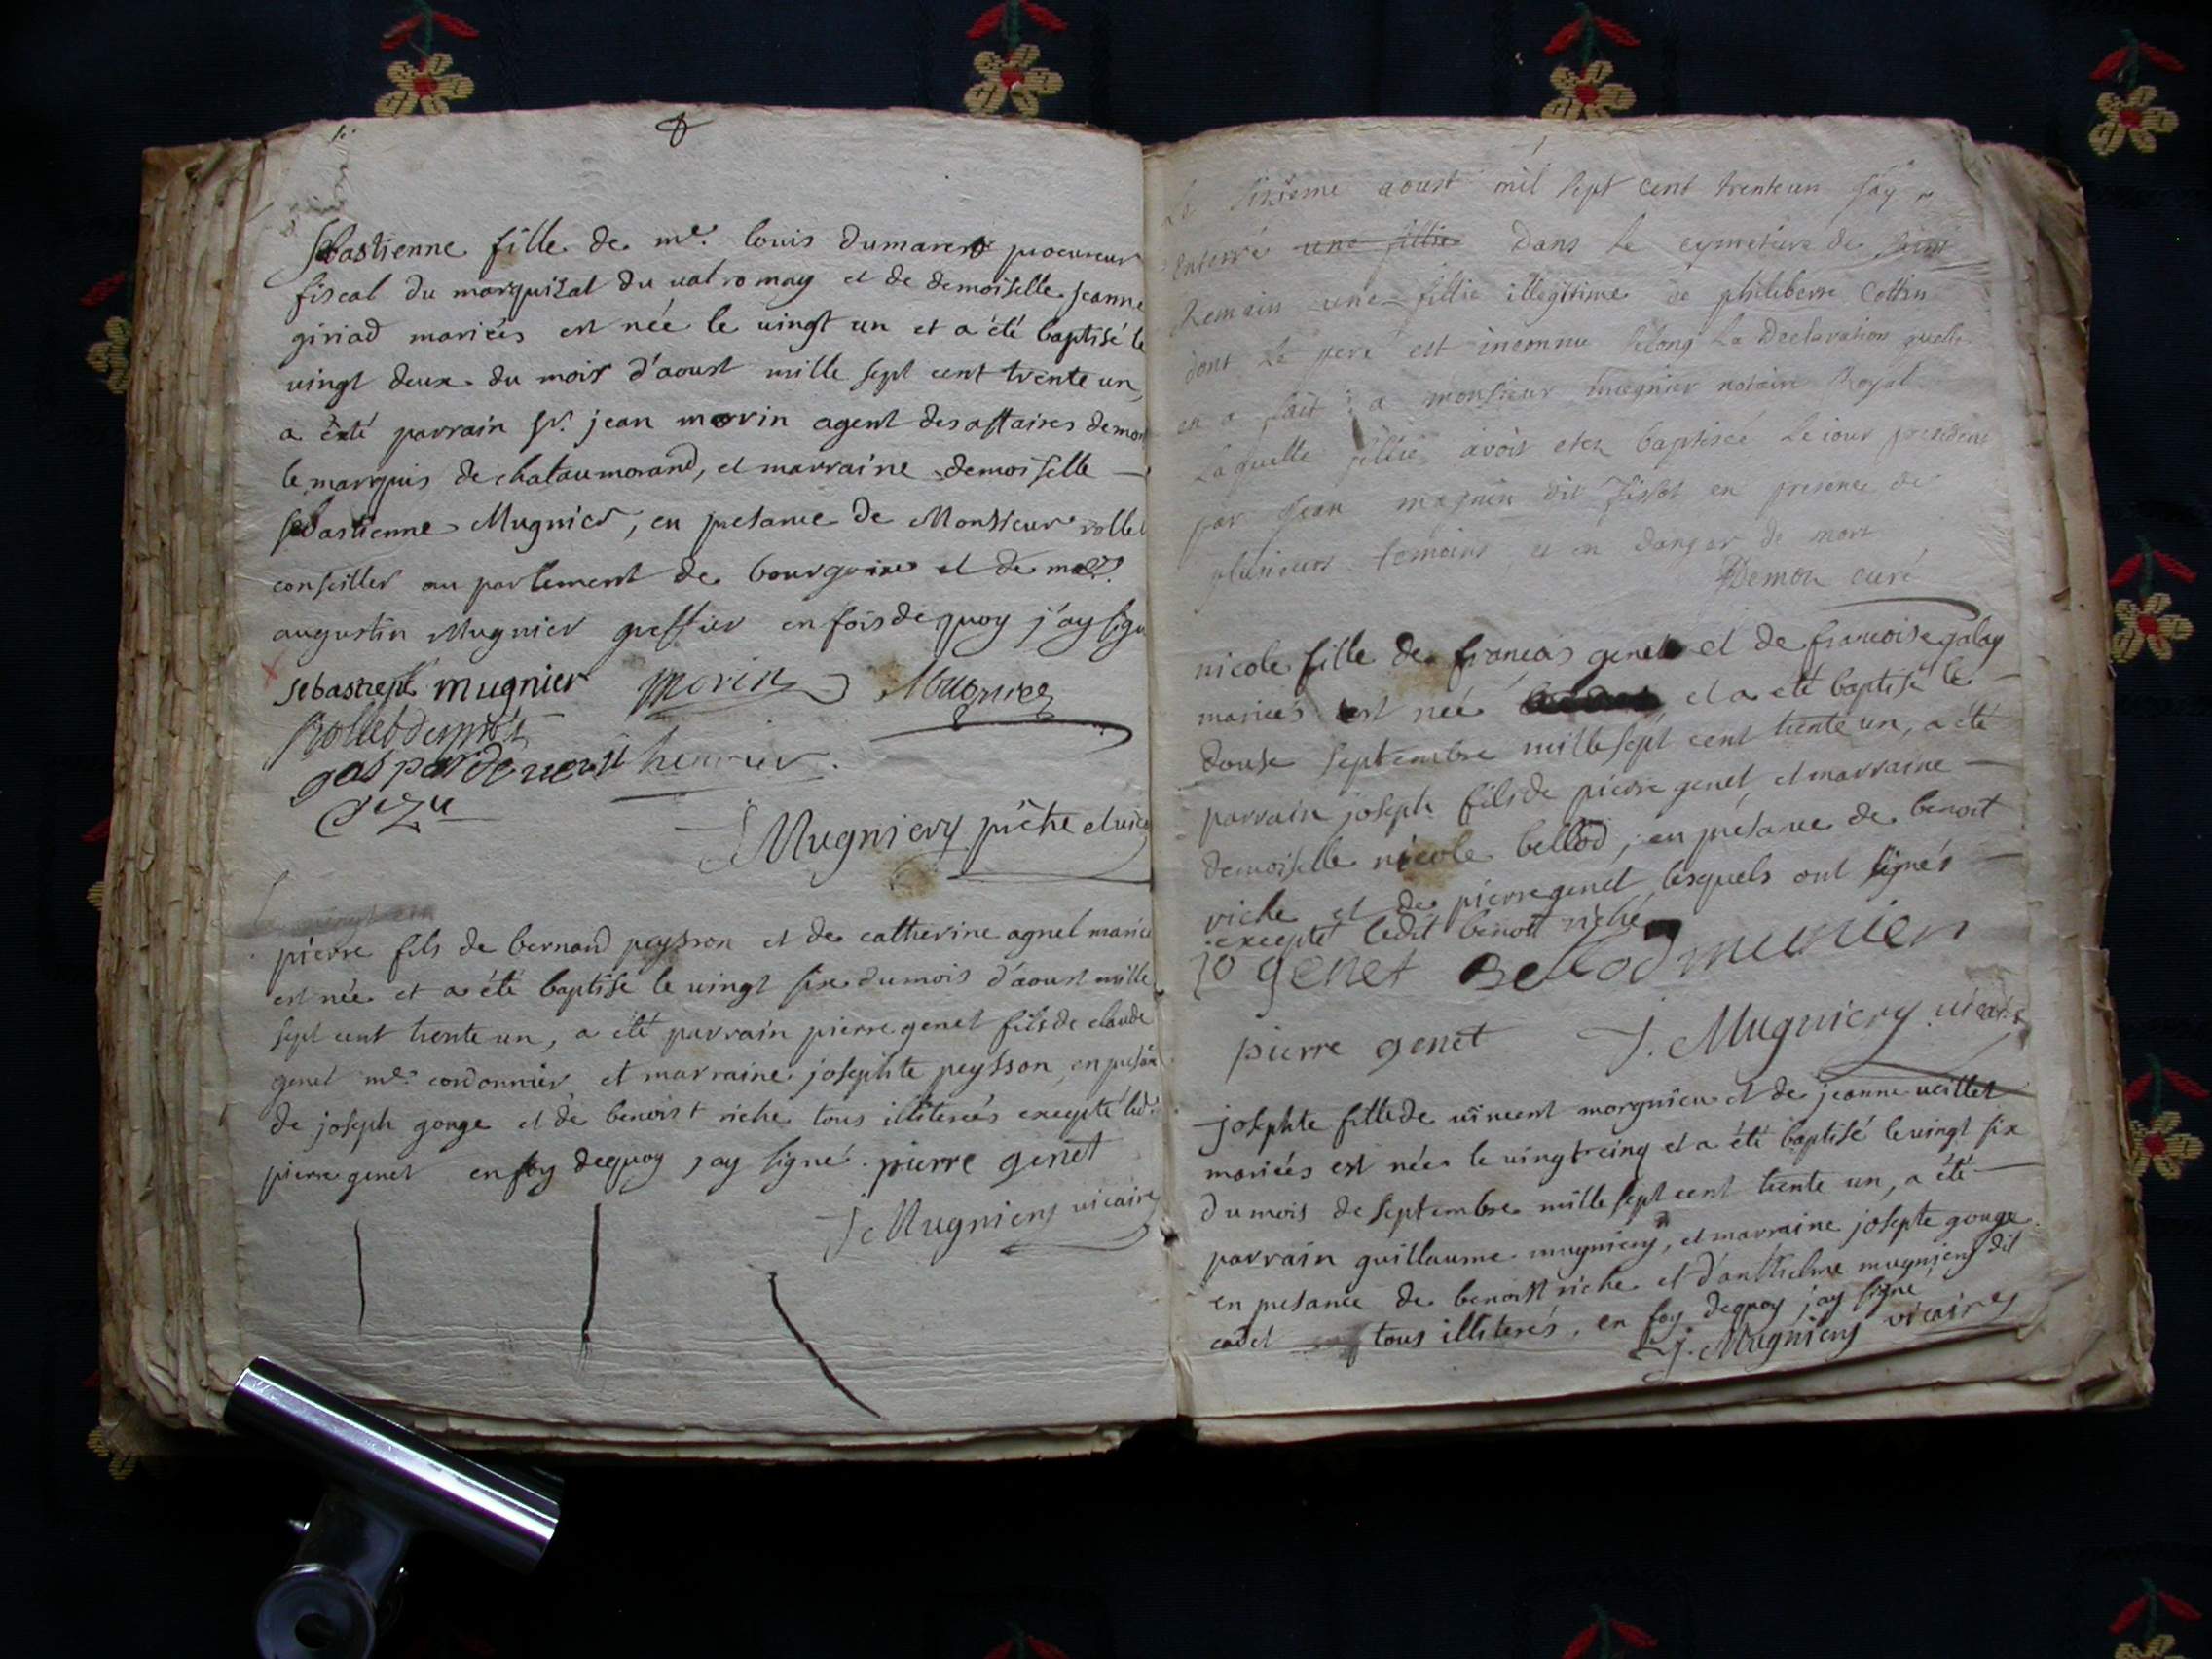 Sebastienne fille de me. louis dumarest procureur
fiscal du marquisat du valromay et de demoiselle jeanne
giriad mariés est née le vingt un et a été baptisé le
vingt deux du mois d'aoust mille sept cent trente un
a êté parrain sr. jean morin agent des affaires de mon
le marquis de chataumorand, et marraine demoiselle
sebastienne Mugnier, en presance de Monsieur rollet
conseiller au parlement de bourgoine et de me.
augustin Mugnier greffier en fois de quoy j'ay signé
mugnier morin Mugnier
henrier
J Mugniery prêtre et vic
pierre fils de bernard peysson et de catherine agnel mariés
est née et a été baptisé le vingt six du mois d'aoust mille
sept cent trente un, a été parrain pierre genet fils de claude
genet me. cordonnier et marraine josephte peysson, en presan
de joseph gonge et de benoist riche tous illiterés excepté led.
pierre genet en foy dequoy j ay signé. pierre genet
J Mugniery vicaire
Le sixieme aoust mil sept cent trente un j'ay
enterré une fillie dans le cymetiere de saint
Romain une fillie illegitime de philiberte Cottin
dont le pere est inconnu selong La declaration quelle
en a fait a monsieur mugnier notaire Royal
Laquelle fillie avoit eter baptisée le iour precedent
par Jean magnin dit Fissot en presence de
plusieurs temoins et en danger de mort
Demon curé
nicole fille de françois genet et de francoise galay
mariés est née et a été baptisé le
douse septembre mille sept cent trente un, a été
parrain joseph fils de pierre genet, et marraine
demoiselle nicole bellod, en présance de benoit
riche et de pierre genet lesquels ont signés
excepté ledit benoit riché
jo genet Bellod munier
pierre genet J. Mugniery vicaire
josephte fille de vincent morgnieu et de jeanne veillet
mariés est née le vingt cinq et a été baptisé le vingt six
du mois de septembre mille sept cent trente un, a été
parrain guillaume mugniery, et marraine josepte gonge
en presance de benoist riche et d'anthelme mugniery dit
cadet tous illiterés, en foy dequoy j ay signé
J. Mugniery vicaire